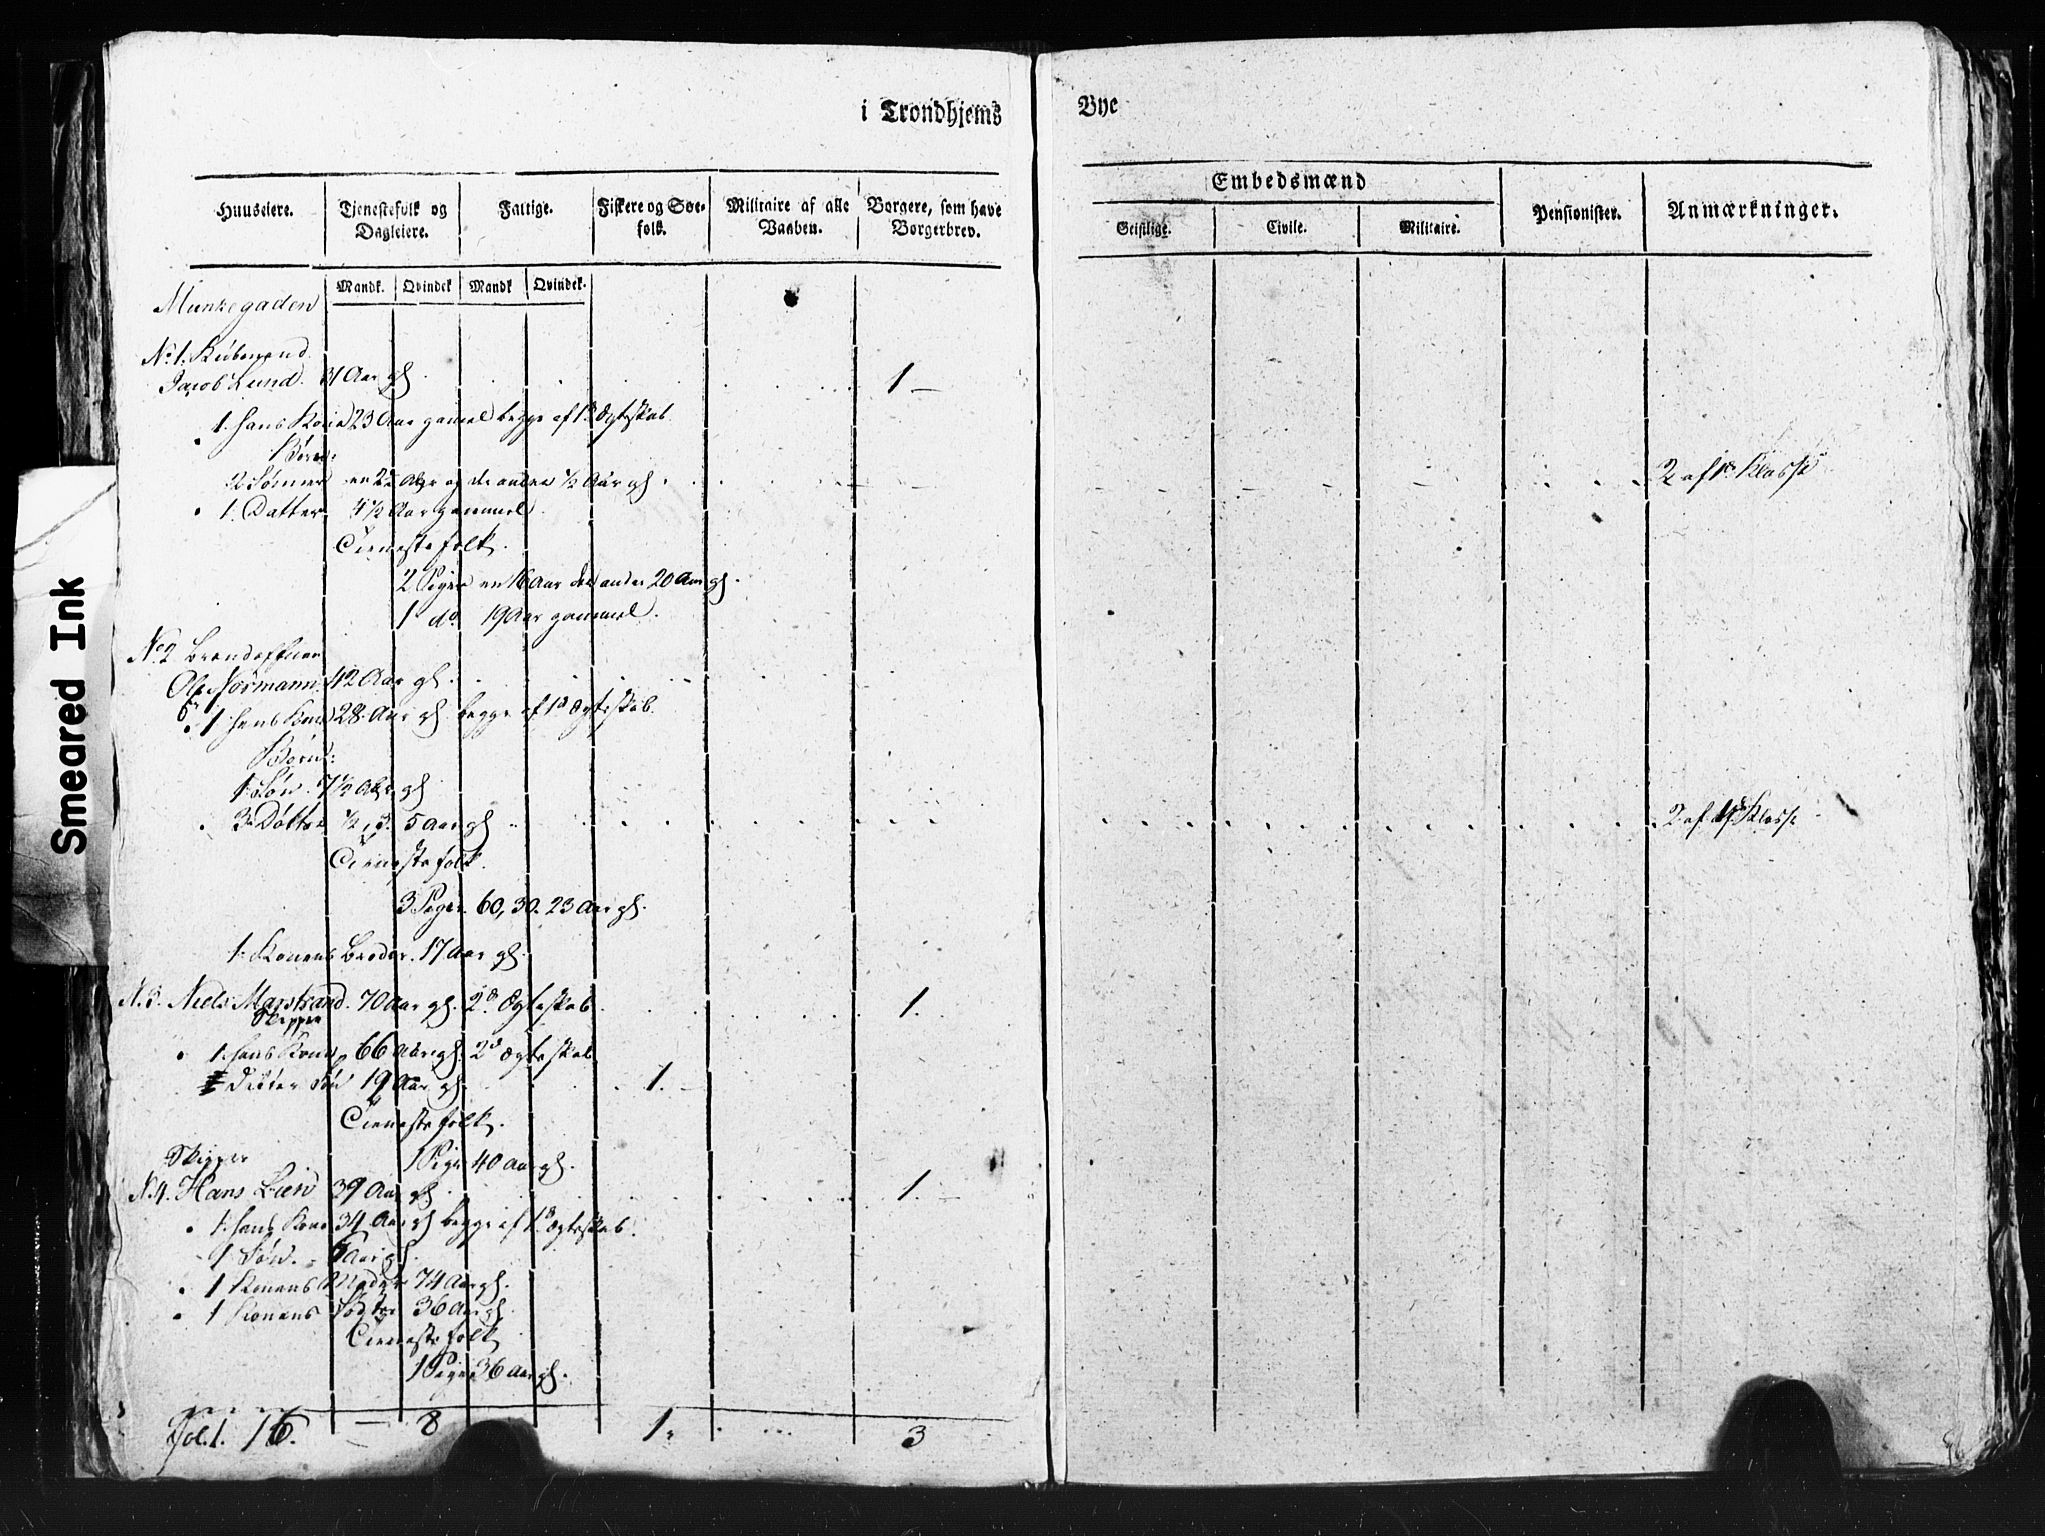 i Trondhjems Bye
Huuseiere.
Tjenestefolk og Dagleiere.
Fattige.
Fiskere og Søefolk.
Militaire af alle Vaaben.
Borgere, som have Borgerbrev.
Embedsmænd
Geistlige.
Civile.
Militaire.
Pensionister.
Anmærkninger.
Mandk. Qvindek Mandk Qvindek.
Munkegaden
No 1. Kiøbmand
Jacob Lund. 31 Aar gl. 1 —
1. hans Kone 23 Aar gamel begge af 1e Ægteskab
Børn:
2 Sønner en 2½ Aar og de anden ½ Aar gl. 2 af 1e Klasse
1. Datter 4½ Aar gammel
Tieneste folk.
2 Piger en 16 Aar den anden 20 Aar gl.
1 do 19 Aar gammel.
No 2
Ole Normann 42 Aar gl.
1 hans Kone 28 Aar gl. begge af 1e Ægteskab.
Børn:
1 Søn. 7½ Aar gl
3 Døttre ½, 3. 5 Aar gl 2 af 1e Klasse
Tieneste folk.
3 Piger. 60, 30. 23 Aar gl.
1. Konens Broder. 17 Aar gl.
N. 3. Niels Marstrand. 70 Aar gl. 2d Ægteskab. 1.
Skipper
1. hans Kone 66 Aar gl. 2d Ægteskab
Datter Søn 19 Aar gl. 1. —
Tieneste folk.
1 Pige 40 Aar gl.
Skipper
N. 4. Hans Lien 39 Aar gl. 1. —
1. hans Kone 34 Aar gl begge af 1e Ægteskab.
1 Søn. Aar gl.
1 Konens Moder 74 Aar gl.
1 Konens Søster 36 Aar gl.
Tieneste folk
1 Pige 36 Aar gl.
Fol. 1. 16. — 8 1. 3
Smeared Ink